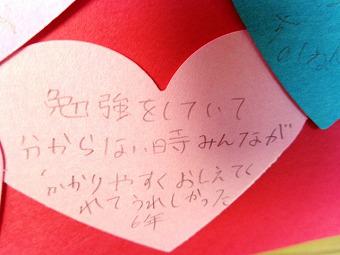 勉強をしていて
分からない時みんなが
かかりやすくおしえてく
れてうれしかった
6年